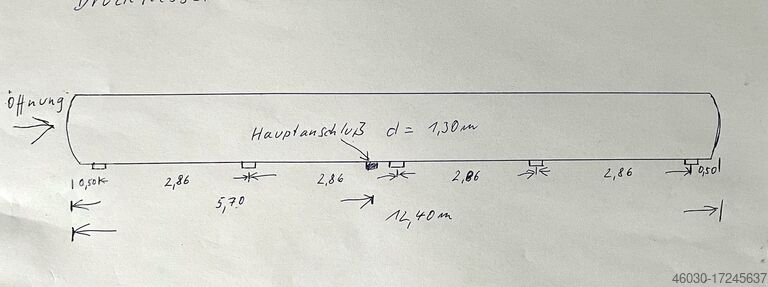 Öffnung
Hauptanschluß d = 1,30m
0,50 2,86 2,86 2,86 2,86 0,50
5,70
12,40m
46030-17245637